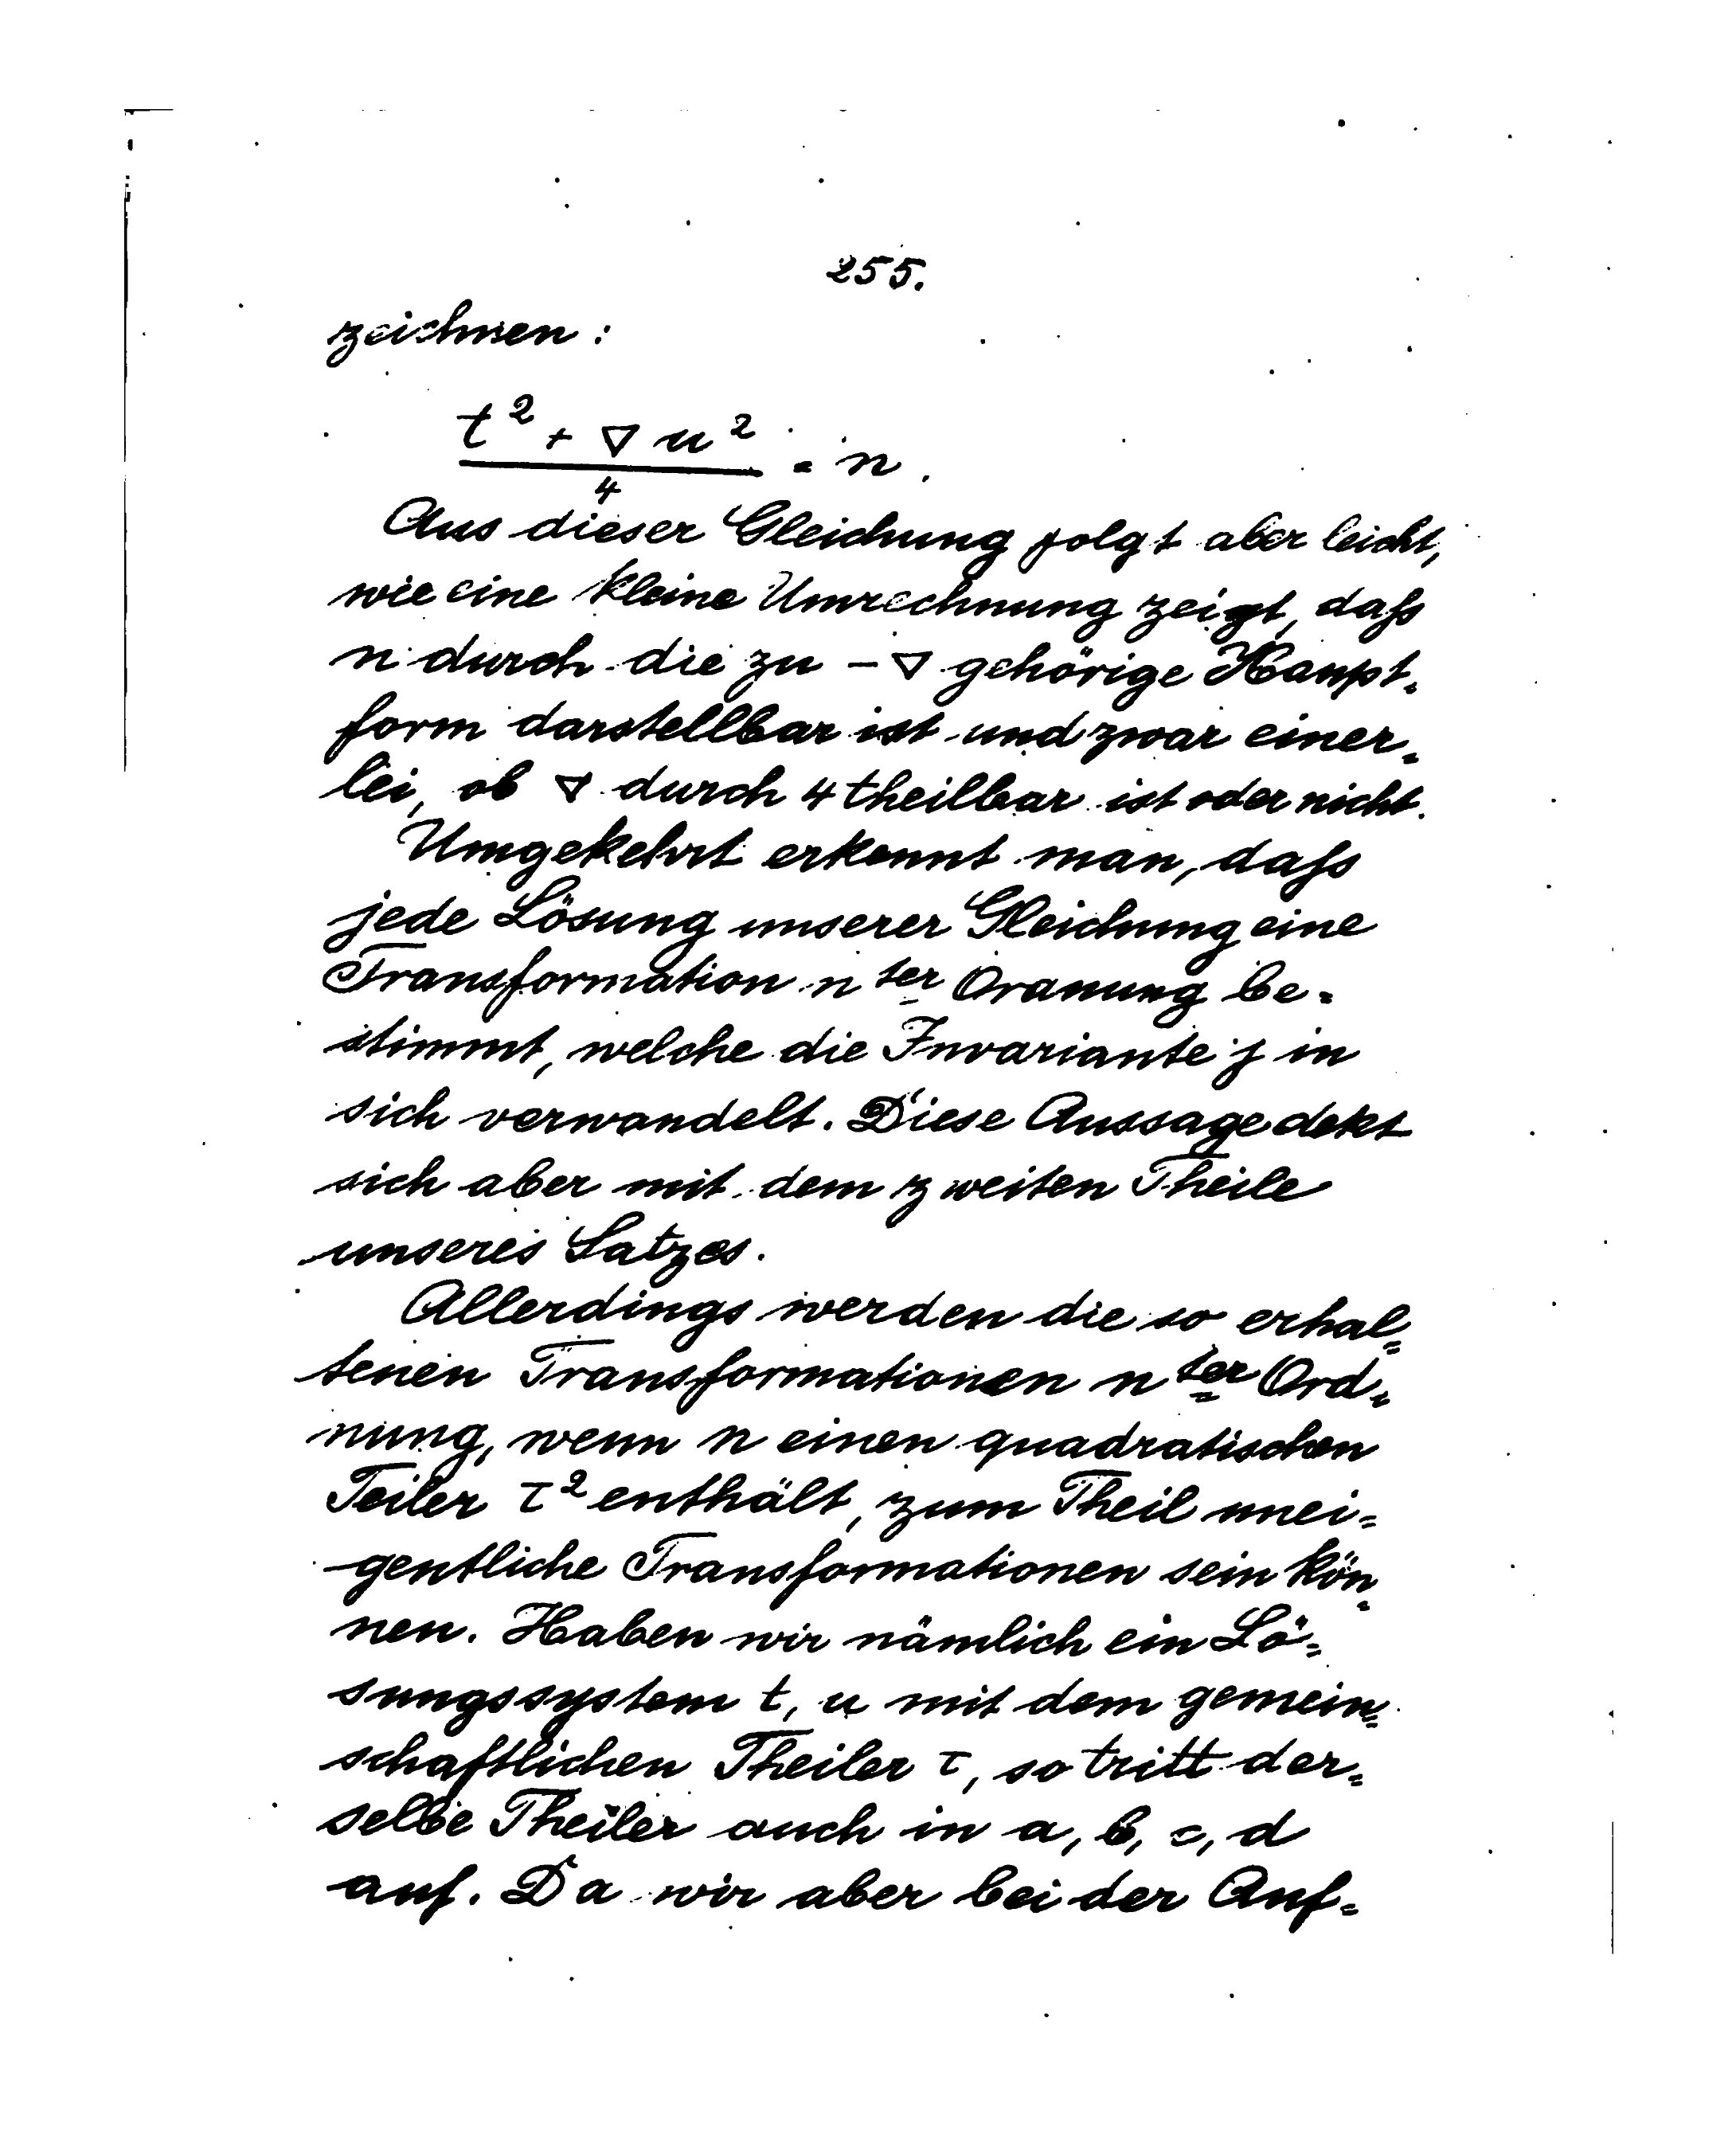 255.
zeichnen:
t² + ∇ u² / 4 = n.
Aus dieser Gleichung folgt aber leicht,
wie eine kleine Umrechnung zeigt, daſs
n durch die zu -∇ gehörige Haupt=
form darstellbar ist und zwar einer=
lei, ob ∇ durch 4 theilbar ist oder nicht.
Umgekehrt erkennt man, daſs
jede Lösung unserer Gleichung eine
Transformation n ter Ordnung be=
stimmt, welche die Invariante j in
sich verwandelt. Diese Aussage dekt
sich aber mit dem zweiten Theile
unseres Satzes.
Allerdings werden die so erhal=
tenen Transformationen n ter Ord=
nung, wenn n einen quadratischen
Teiler τ² enthält, zum Theil unei=
gentliche Transformationen sein kön=
nen. Haben wir nämlich ein Lö=
sungssystem t, u mit dem gemein=
schaftlichen Theiler τ, so tritt der=
selbe Theiler auch in a, b, c, d
auf. Da wir aber bei der Auf=